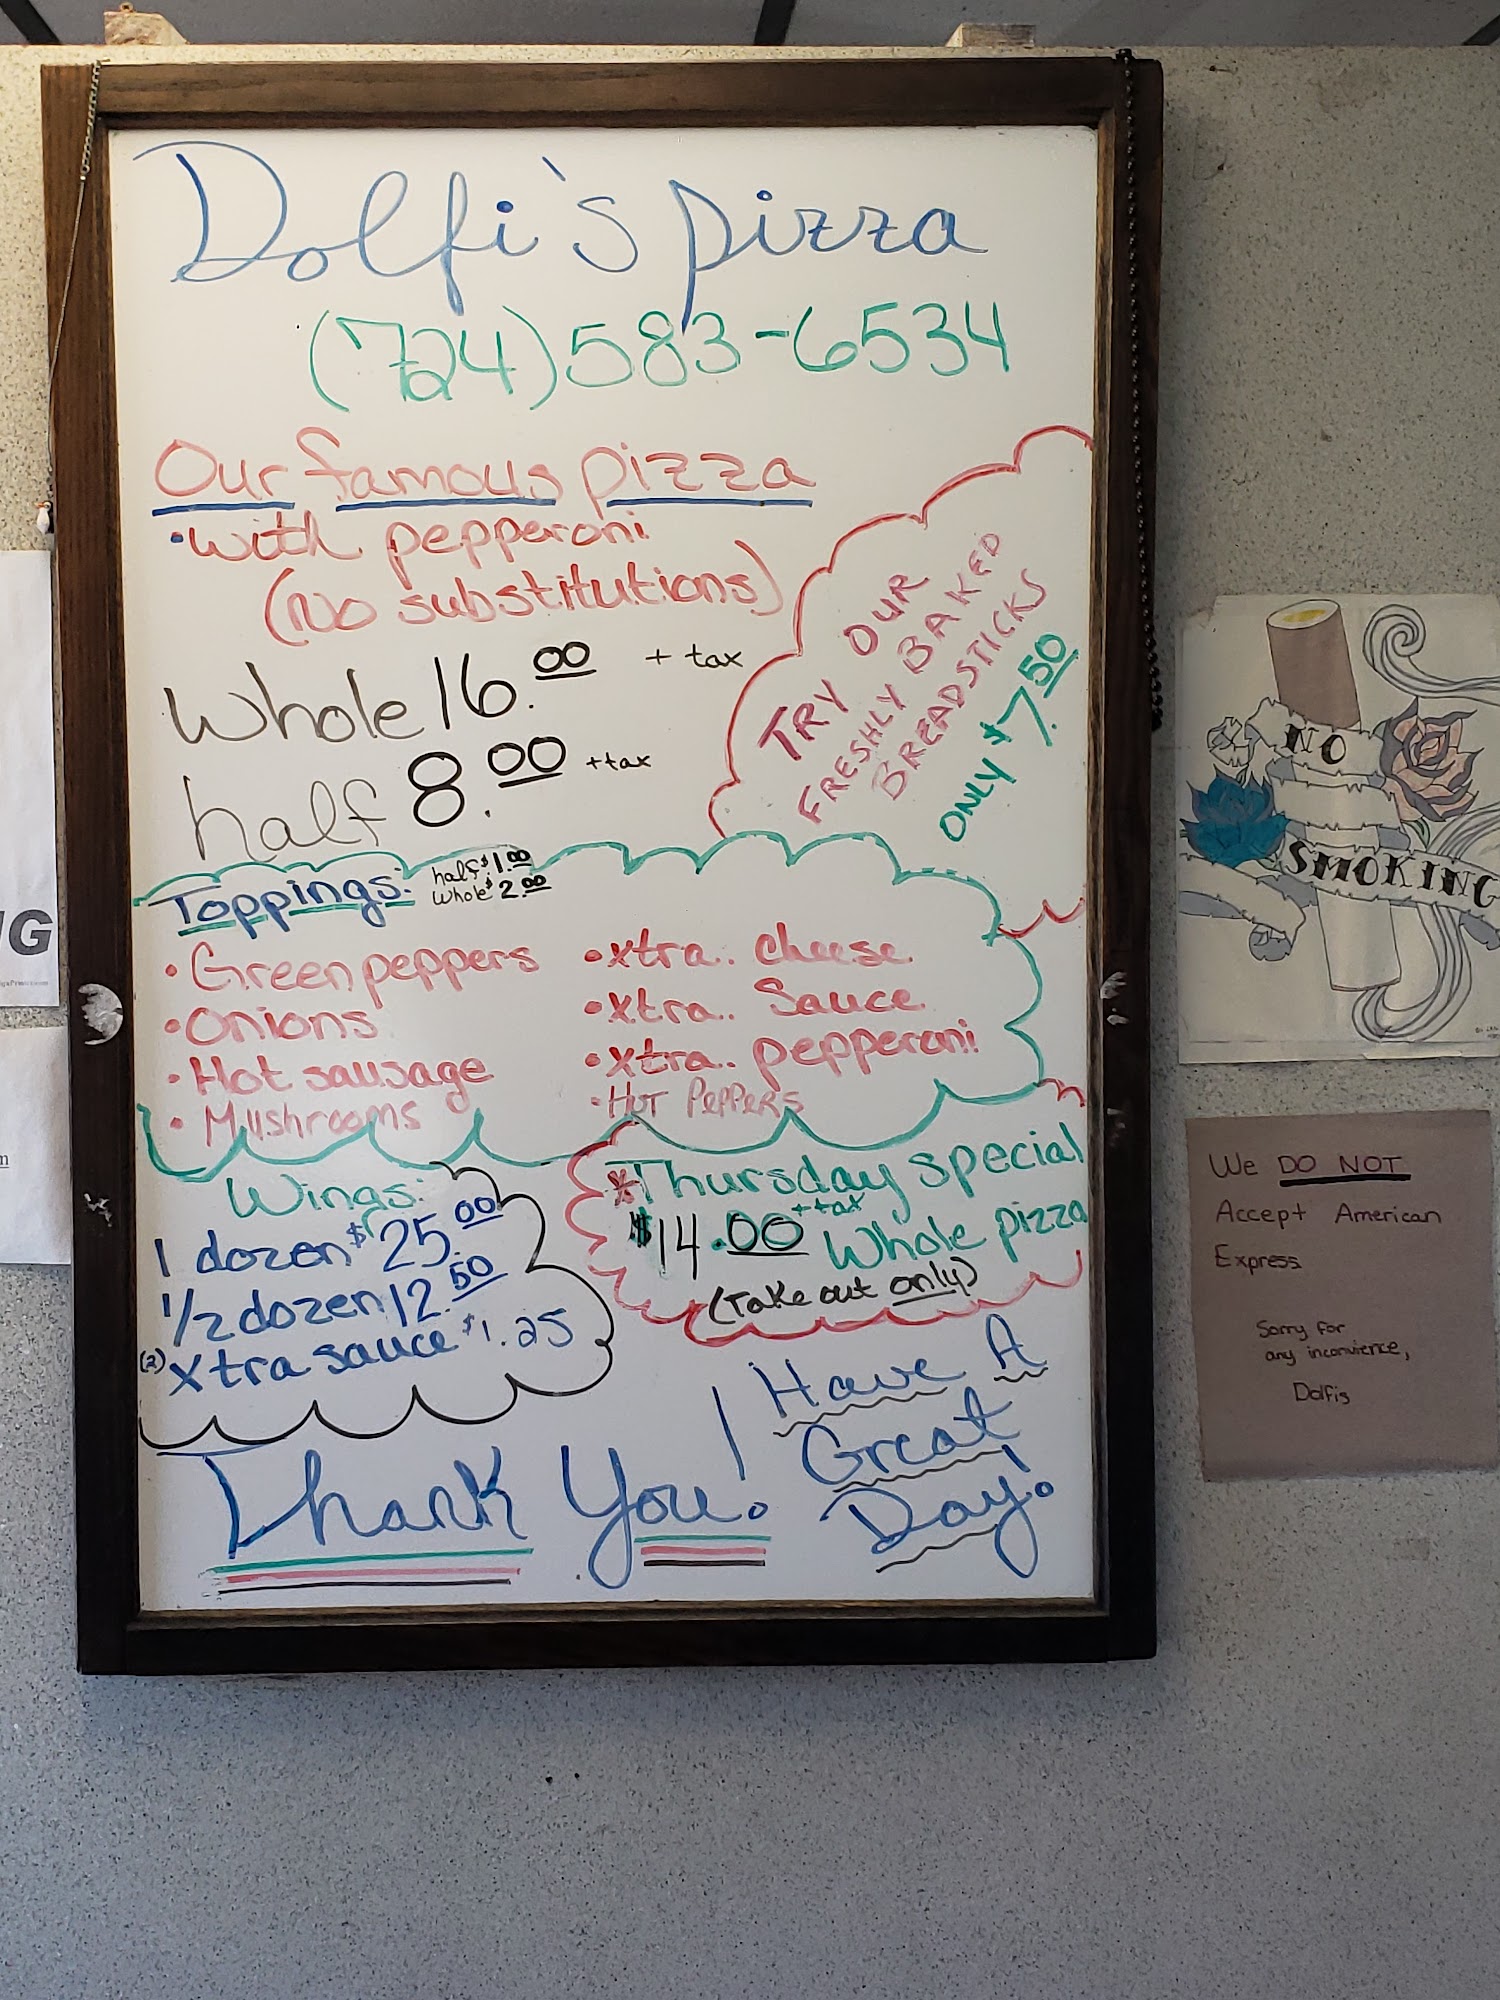 Dolfi's pizza
(724)583-6534
Our famous pizza
•with pepperoni
(No substitutions)
Whole 16.00 + tax
half 8.00 +tax
TRY OUR
FRESHLY BAKED
BREADSTICKS
ONLY $7.50
Toppings: half $1.00
Whole $2.00
•Green peppers
•Onions
•Hot sausage
•Mushrooms
•xtra.. cheese
•xtra.. Sauce
•xtra.. pepperoni
•HOT PEPPERS
Wings:
1 dozen $25.00
1/2 dozen 12.50
(2) xtra sauce $1.25
*Thursday special
$14.00 + tax Whole pizza
(Take out only)
Thank You!
Have A
Great
Day!
NO
SMOKING
We DO NOT
Accept American
Express
Sorry for
any inconvience,
Dolfis
NG